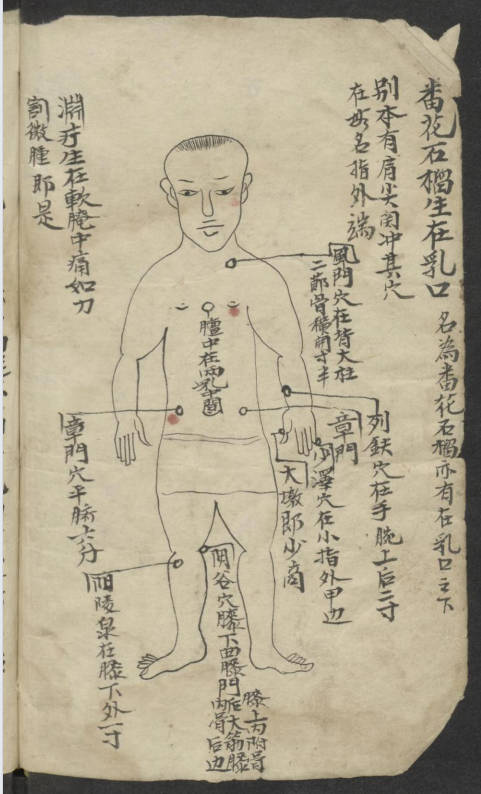 番花石榴生在乳口
名為番花石榴亦有在乳口之下
別本有肩尖関冲其穴
在無名指外端
風門穴在背大柱
二節骨橫開寸半
膻中在両乳中間
列缺穴在手腕上后二寸
章門
少澤穴在小指外甲边
大墩即少商
淵疔生在軟腌中痛如刀
割微腫即是
章門穴平臍六分
阳陵泉在膝下外一寸
阴谷穴膝下曲膝門
内后大筋膝
骨后边
膝上内附骨